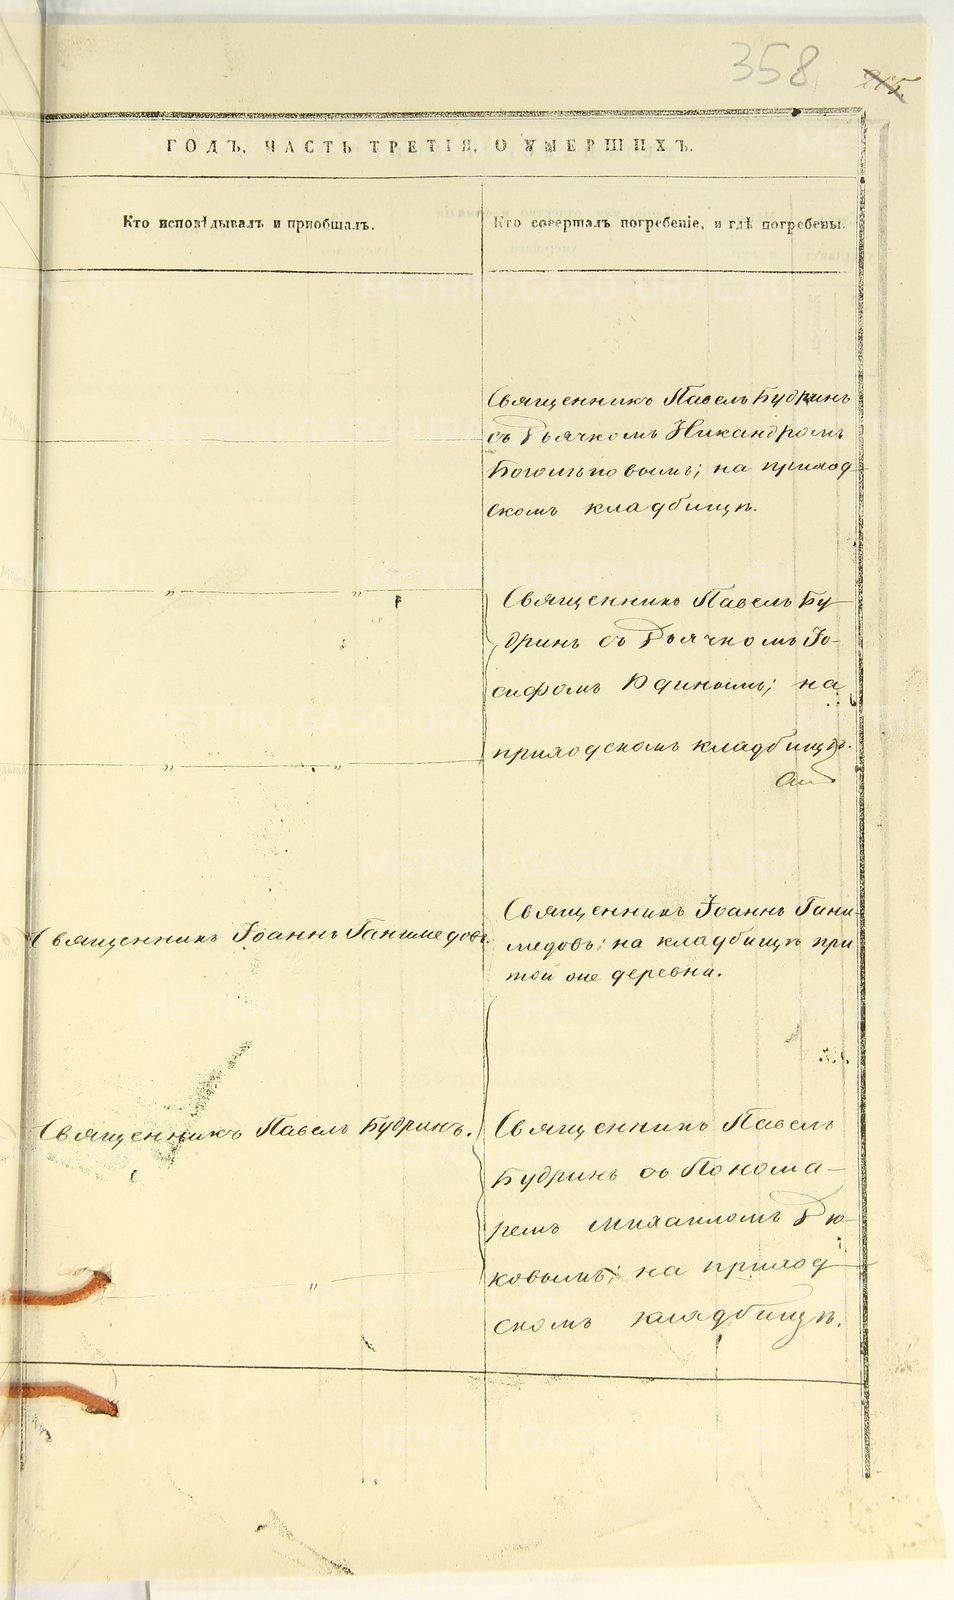 358
ГОДЪ, ЧАСТЬ ТРЕТІЯ, О УМЕРШИХЪ.
Кто исповѣдывалъ и пріобщалъ.
Кто совершалъ погребеніе, и гдѣ погребены.
Священникъ Павелъ Будринъ
съ Дьячкомъ Никандромъ
Боголѣповымъ; на приход
скомъ кладбищѣ.
„ „
Священникъ Павелъ Бу-
дринъ съ Дьячкомъ Іо-
сифомъ на
приходскомъ кладбищѣ.
„ „
Священникъ Іоаннъ Ганимедовъ.
Священникъ Іоаннъ Гани-
медовъ; на кладбищѣ при
той же деревни.
Священникъ Павелъ Будринъ.
Священникъ Павелъ
Будринъ съ Понома-
ремъ Михаиломъ Дю
ковымъ; на приход
скомъ кладбищѣ.
„
METRIKI.GASO-URAL.RU